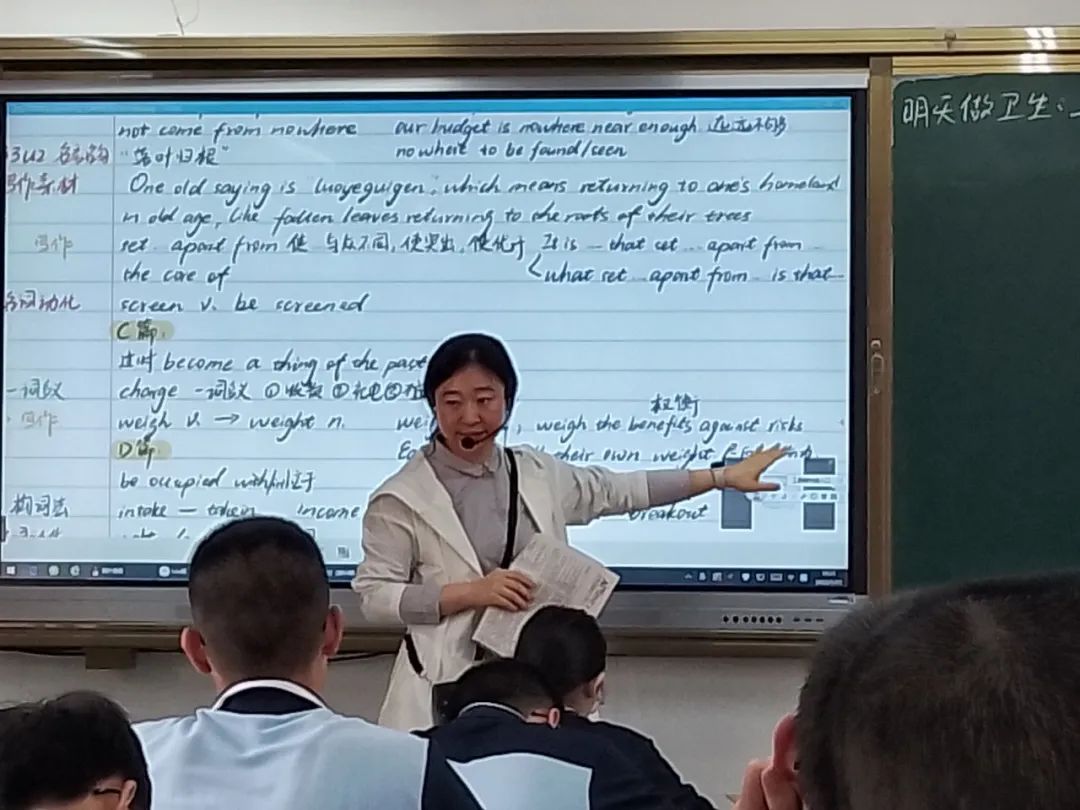 not come from nowhere our budget is nowhere near enough 远远不够
nowhere to be found/seen
"落叶归根"
写作素材 One old saying is "luoyeguigen", which means returning to one's homeland
in old age, like fallen leaves returning to the roots of their trees
写作 set apart from 使 与众不同, 使突出, 使优于 It is … that set … apart from …
the core of what set … apart from … is that …
名词动化 screen v. be screened
C篇:
过时 become a thing of the past
一词多义 charge 一词多义 ① 收费 ② 充电 ③
写作 weigh v. → weight n. 权衡 weigh the benefits against risks
D篇: their own weight
be occupied with/in
构词法 intake — take in income breakout
明天做卫生: